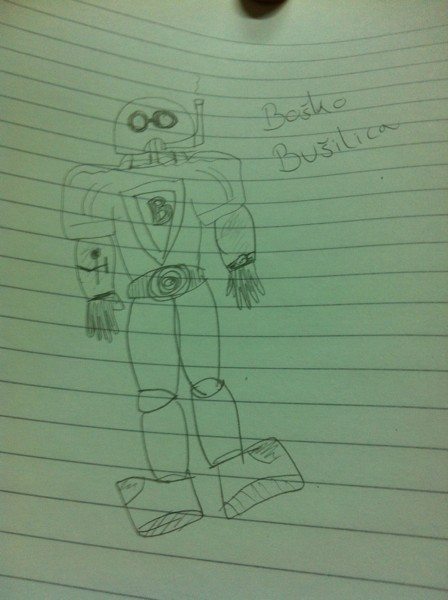 Boško
Bušilica
B